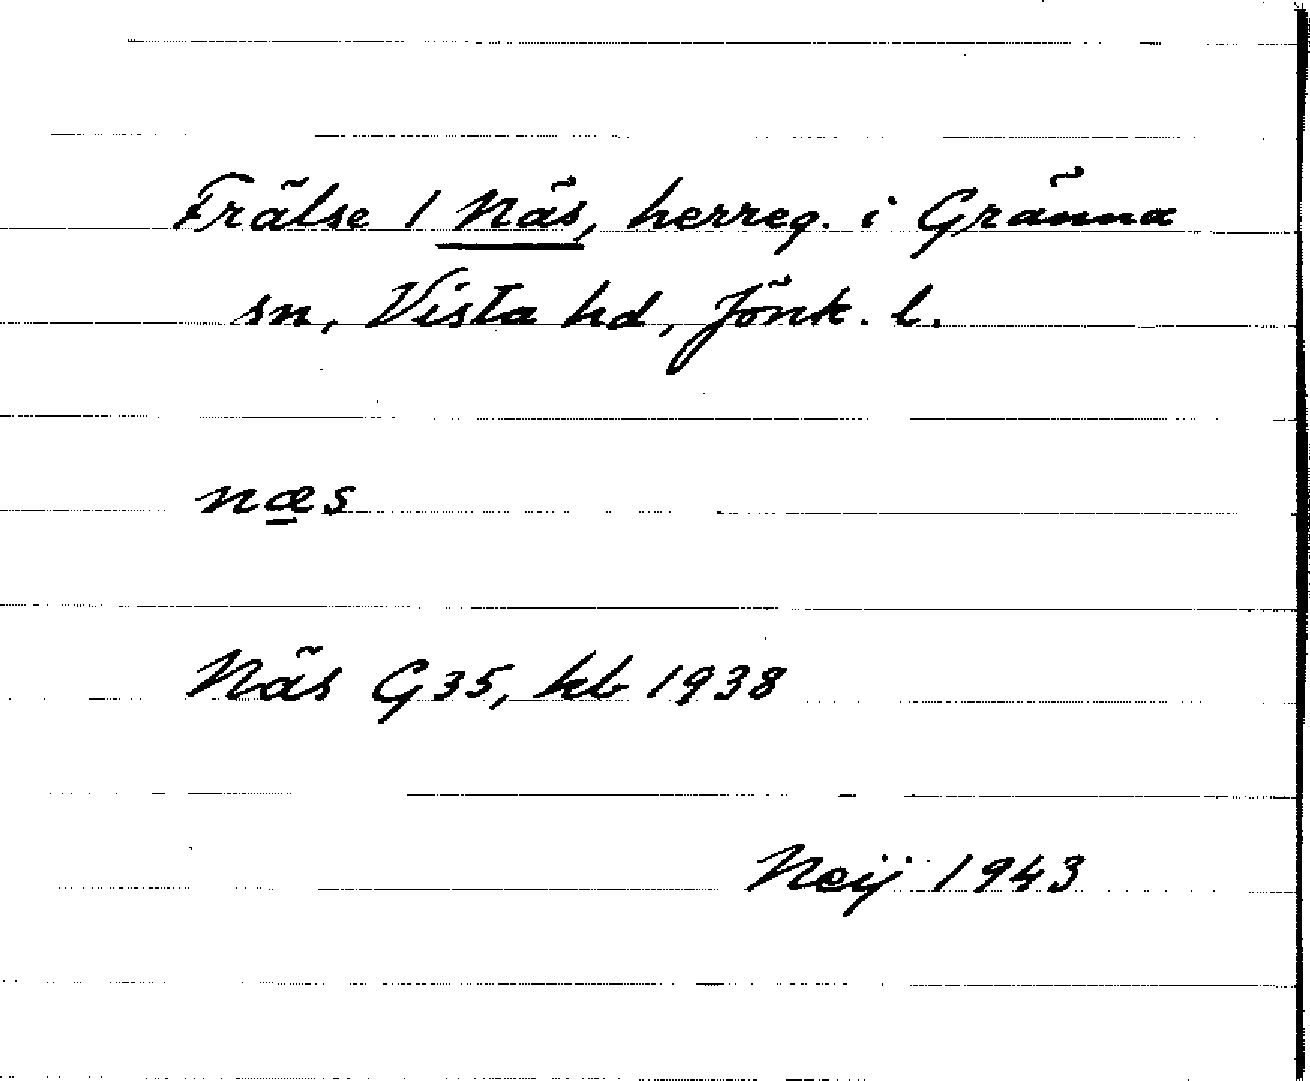 Frälse 1 Näs, herreg. i Gränna
sn, Vista hd, Jönk. l.
næs
Näs G35, kb 1938
Neij 1943